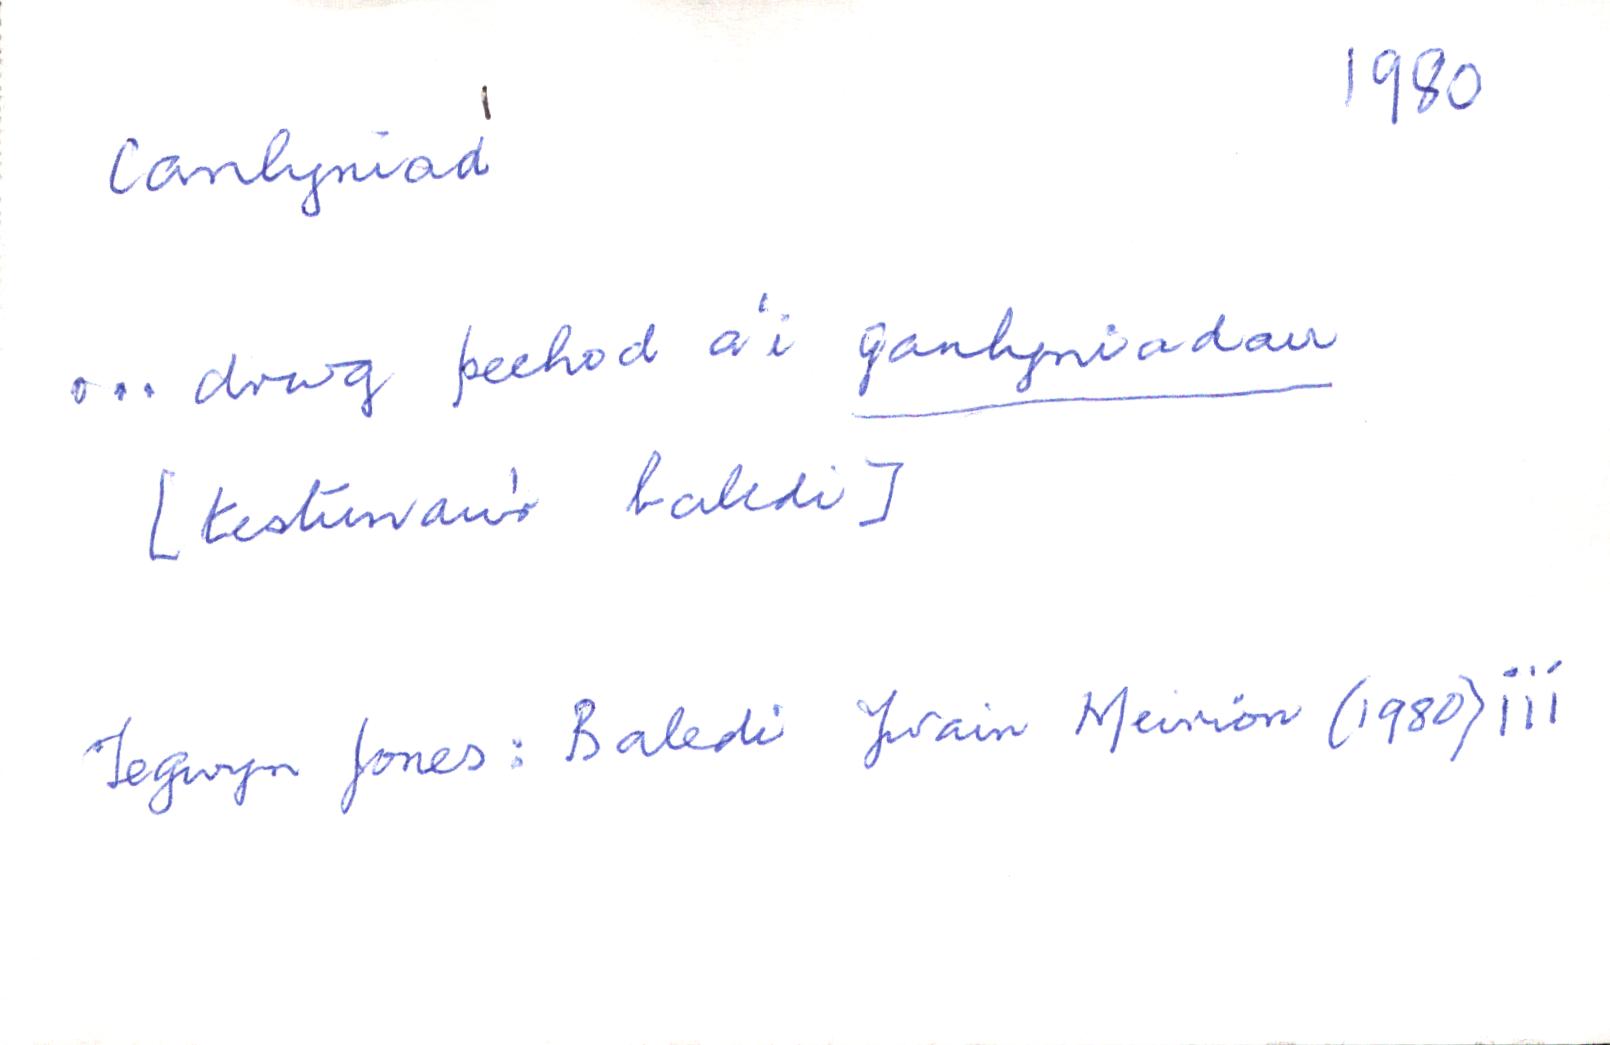 1980
Canlyniad
... drwg pechod a'i ganlyniadau
[testunau'r baledi]
Tegwyn Jones: Baledi Ywain Meirion (1980) iii